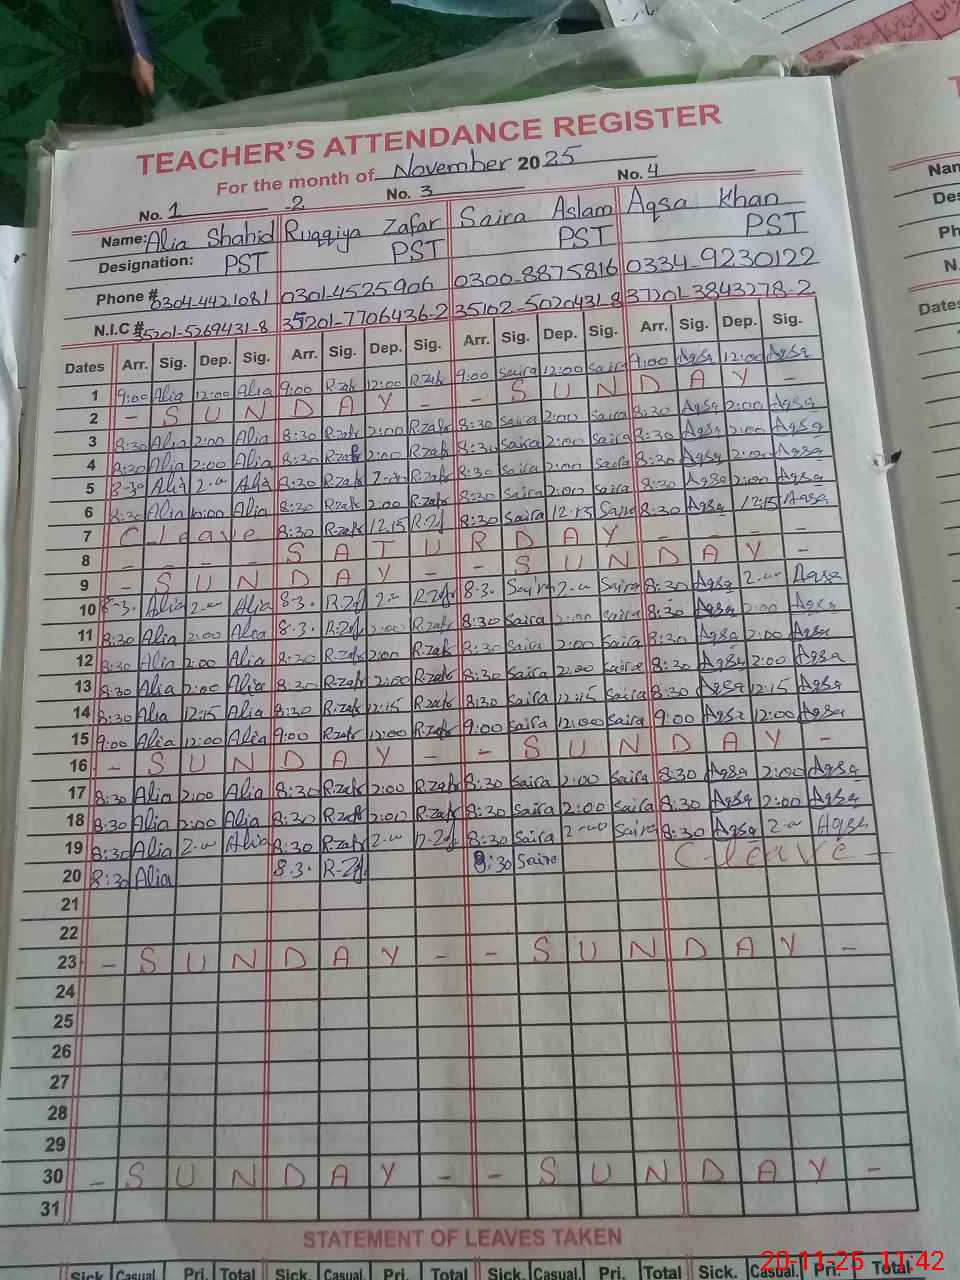 TEACHER'S ATTENDANCE REGISTER
For the month of November 2025
No. 1 -2 No. 3 No. 4
Name: Alia Shahid Ruqqiya Zafar Saira Aslam Aqsa Khan
Designation: PST PST PST PST
Phone # 0304-4421081 0301-4525906 0300-8875816 0334-9230122
N.I.C # 35201-5269431-8 35201-7706436-2 35102-5020431-8 37201-3843278-2
Dates Arr. Sig. Dep. Sig. Arr. Sig. Dep. Sig. Arr. Sig. Dep. Sig. Arr. Sig. Dep. Sig.
1 9:00 Alia 12:00 Alia 9:00 R.zafr 12:00 R.zafr 9:00 Saira 12:00 Saira 9:00 Aqsa 12:00 Aqsa
2 - S U N D A Y - - S U N D A Y -
3 8:30 Alia 2:00 Alia 8:30 R.zafr 2:00 R.zafr 8:30 Saira 2:00 Saira 8:30 Aqsa 2:00 Aqsa
4 8:30 Alia 2:00 Alia 8:30 R.zafr 2:00 R.zafr 8:30 Saira 2:00 Saira 8:30 Aqsa 2:00 Aqsa
5 8-30 Alia 2-00 Alia 8:30 R.zafr 2:00 R.zafr 8:30 Saira 2:00 Saira 8:30 Aqsa 2:00 Aqsa
6 8:30 Alia Alia 8:30 R.zafr 2:00 R.zafr 8:30 Saira 2:00 Saira 8:30 Aqsa 2:00 Aqsa
7 C-leave 8:30 R.zafr 12.15 R.Zf 8:30 Saira 12:15 Saira 8:30 Aqsa 12:15 Aqsa
8 - - - - S A T U R D A Y - - - -
9 - S U N D A Y - - S U N D A Y -
10 8-3. Alia 2-00 Alia 8-3. R.Zf 2-00 R.Zf 8-3. Saira 2-00 Saira 8:30 Aqsa 2-00 Aqsa
11 8:30 Alia 2:00 Alia 8-3. R.Zf 2:00 R.zafr 8:30 Saira 2:00 Saira 8:30 Aqsa 2:00 Aqsa
12 8:30 Alia 2:00 Alia 8:30 R.zafr 2:00 R.zafr 8:30 Saira 2:00 Saira 8:30 Aqsa 2:00 Aqsa
13 8:30 Alia 2:00 Alia 8:30 R.zafr 2:00 R.zafr 8:30 Saira 2:00 Saira 8:30 Aqsa 2:00 Aqsa
14 8:30 Alia 12:15 Alia 8:30 R.zafr 12:15 R.zafr 8:30 Saira 12:15 Saira 8:30 Aqsa 12:15 Aqsa
15 9:00 Alia 12:00 Alia 9:00 R.zafr 12:00 R.zafr 9:00 Saira 12:00 Saira 9:00 Aqsa 12:00 Aqsa
16 - S U N D A Y - - S U N D A Y -
17 8:30 Alia 2:00 Alia 8:30 R.zafr 2:00 R.zafr 8:30 Saira 2:00 Saira 8:30 Aqsa 2:00 Aqsa
18 8:30 Alia 2:00 Alia 8:30 R.zafr 2:00 R.zafr 8:30 Saira 2:00 Saira 8:30 Aqsa 2:00 Aqsa
19 8:30 Alia 2-00 Alia 8:30 R.zafr 2-00 R.Zf 8:30 Saira 2-00 Saira 8:30 Aqsa 2-00 Aqsa
20 8:30 Alia 8-3. R.Zf 8:30 Saira C-leave-
21
22
23 - S U N D A Y - - S U N D A Y -
24
25
26
27
28
29
30 - S U N D A Y - - S U N D A Y -
31
STATEMENT OF LEAVES TAKEN
Sick Casual. Pri. Total Sick. Casual. Pri. Total Sick. Casual. Pri. Total Sick. Casual. Pri. Total
Nam
Des
Ph
N.
Dates
20-11-25 11:42